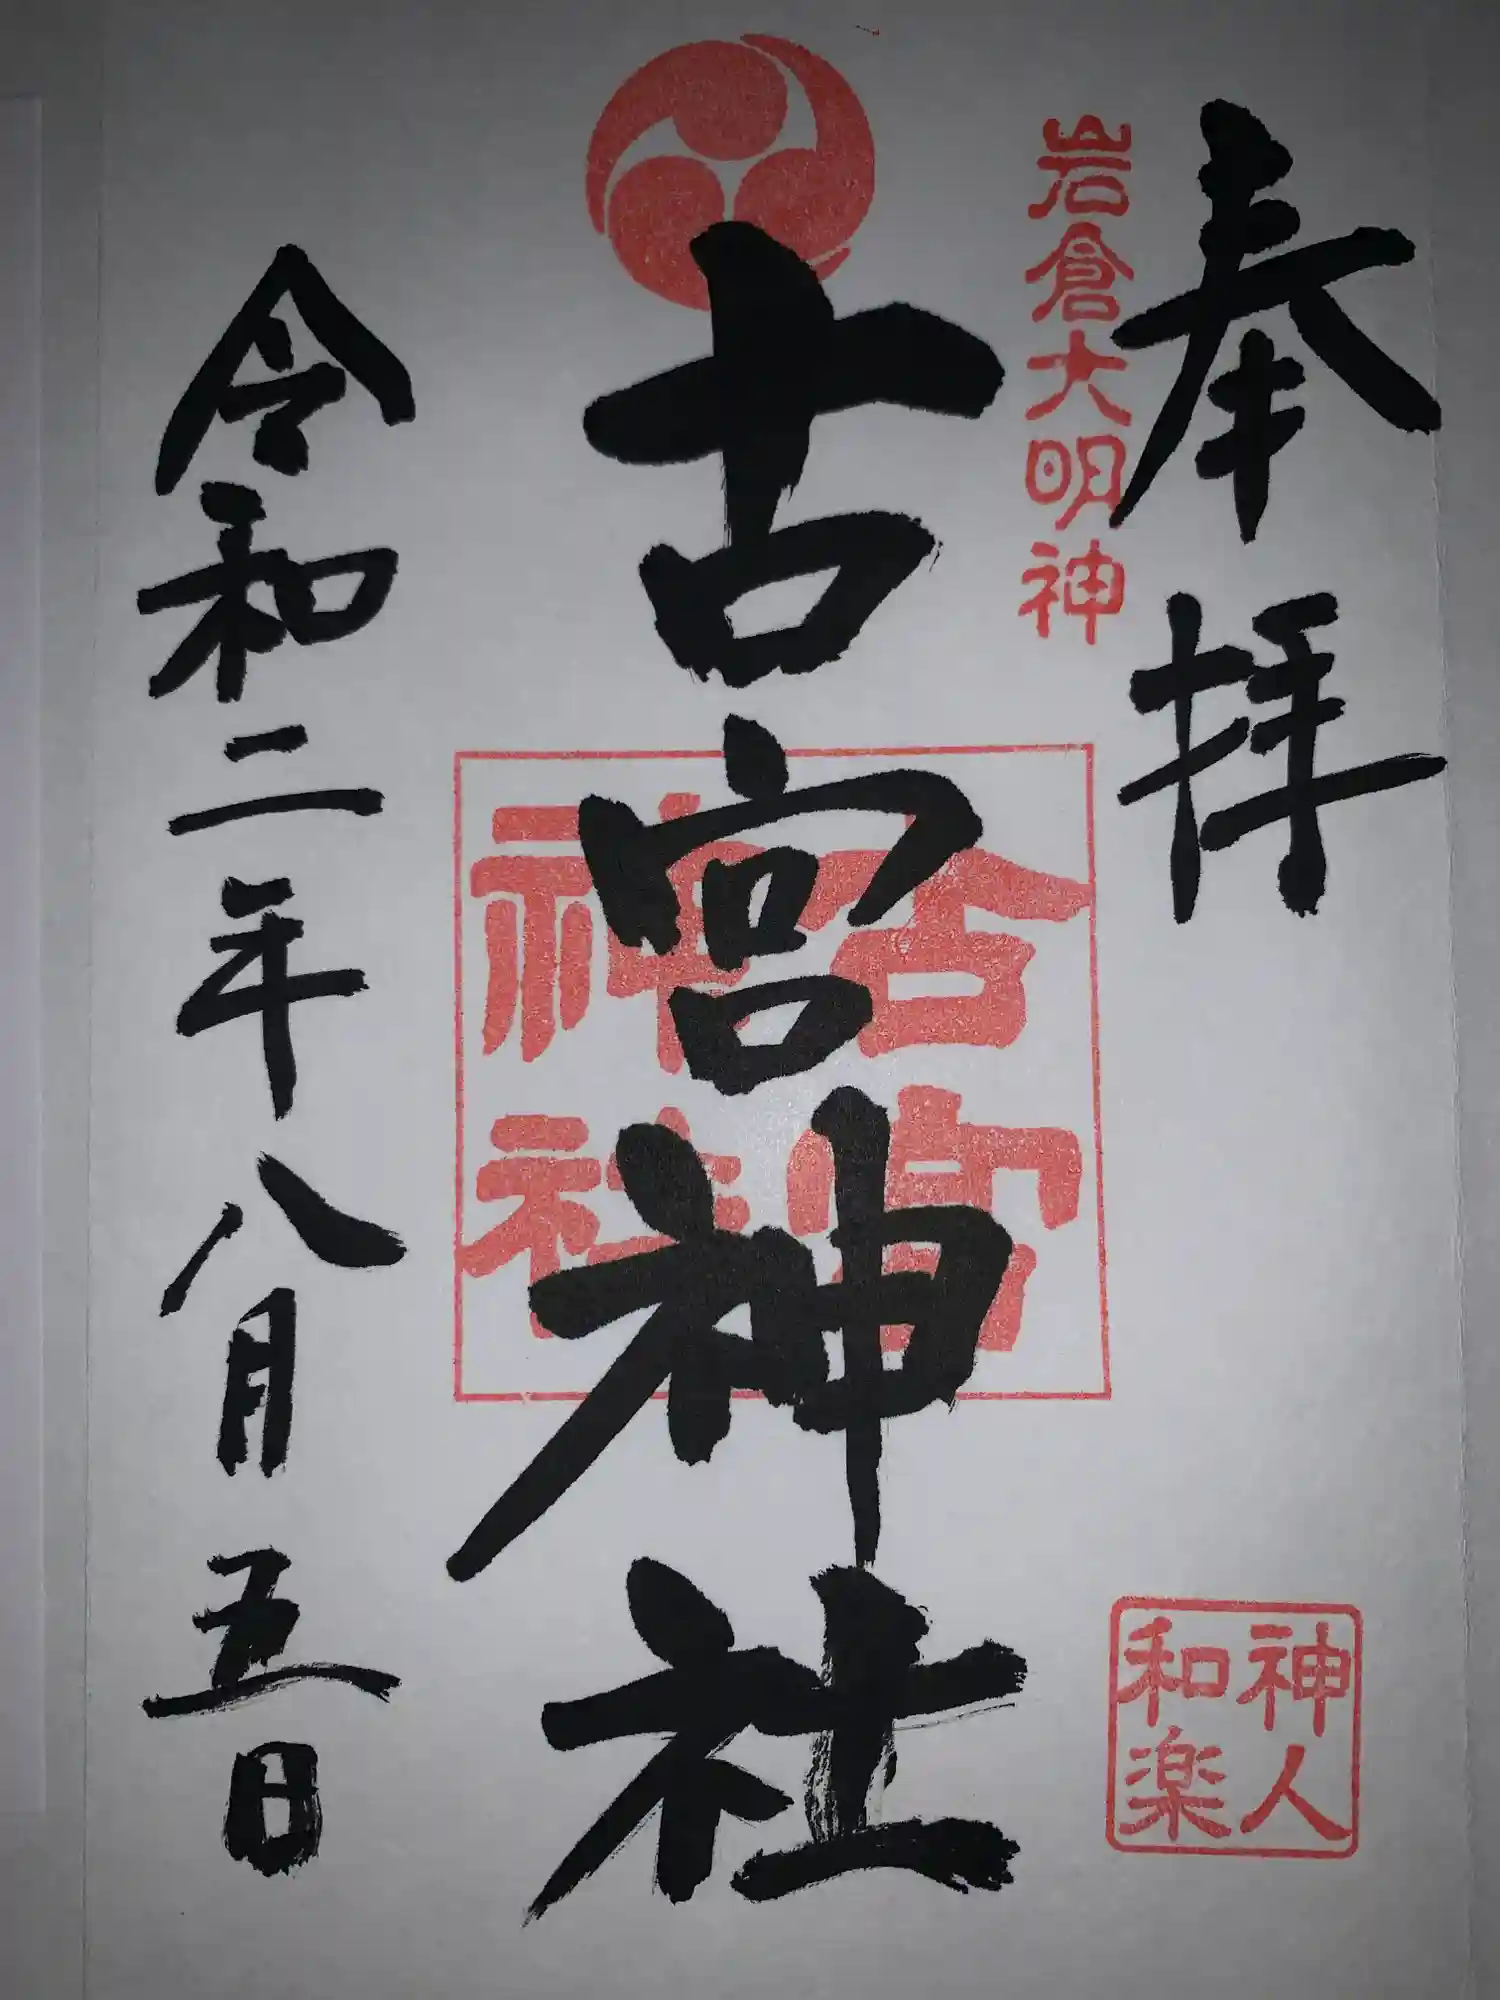 奉拝
岩倉大明神
神人
和楽
古宮神社
古宮
神社
令和二年八月五日